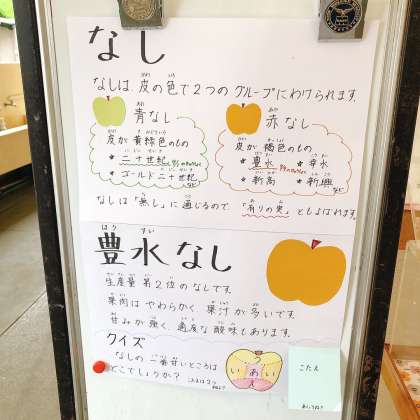 なし
なしは、皮の色で2つのグループにわけられます。
青なし
皮が黄緑色のもの
★二十世紀
★ゴールド二十世紀 など
赤なし
皮が褐色のもの
★豊水 ★幸水
★新高 ★新興 など
なしは「無し」に通じるので「有りの実」ともよばれます。
豊水なし
生産量第2位のなしです。
果肉はやわらかく、果汁が多いです。
甘みが強く、適度な酸味もあります。
クイズ
なしの一番甘いところは
どこでしょうか?
う
い あ い
こたえ